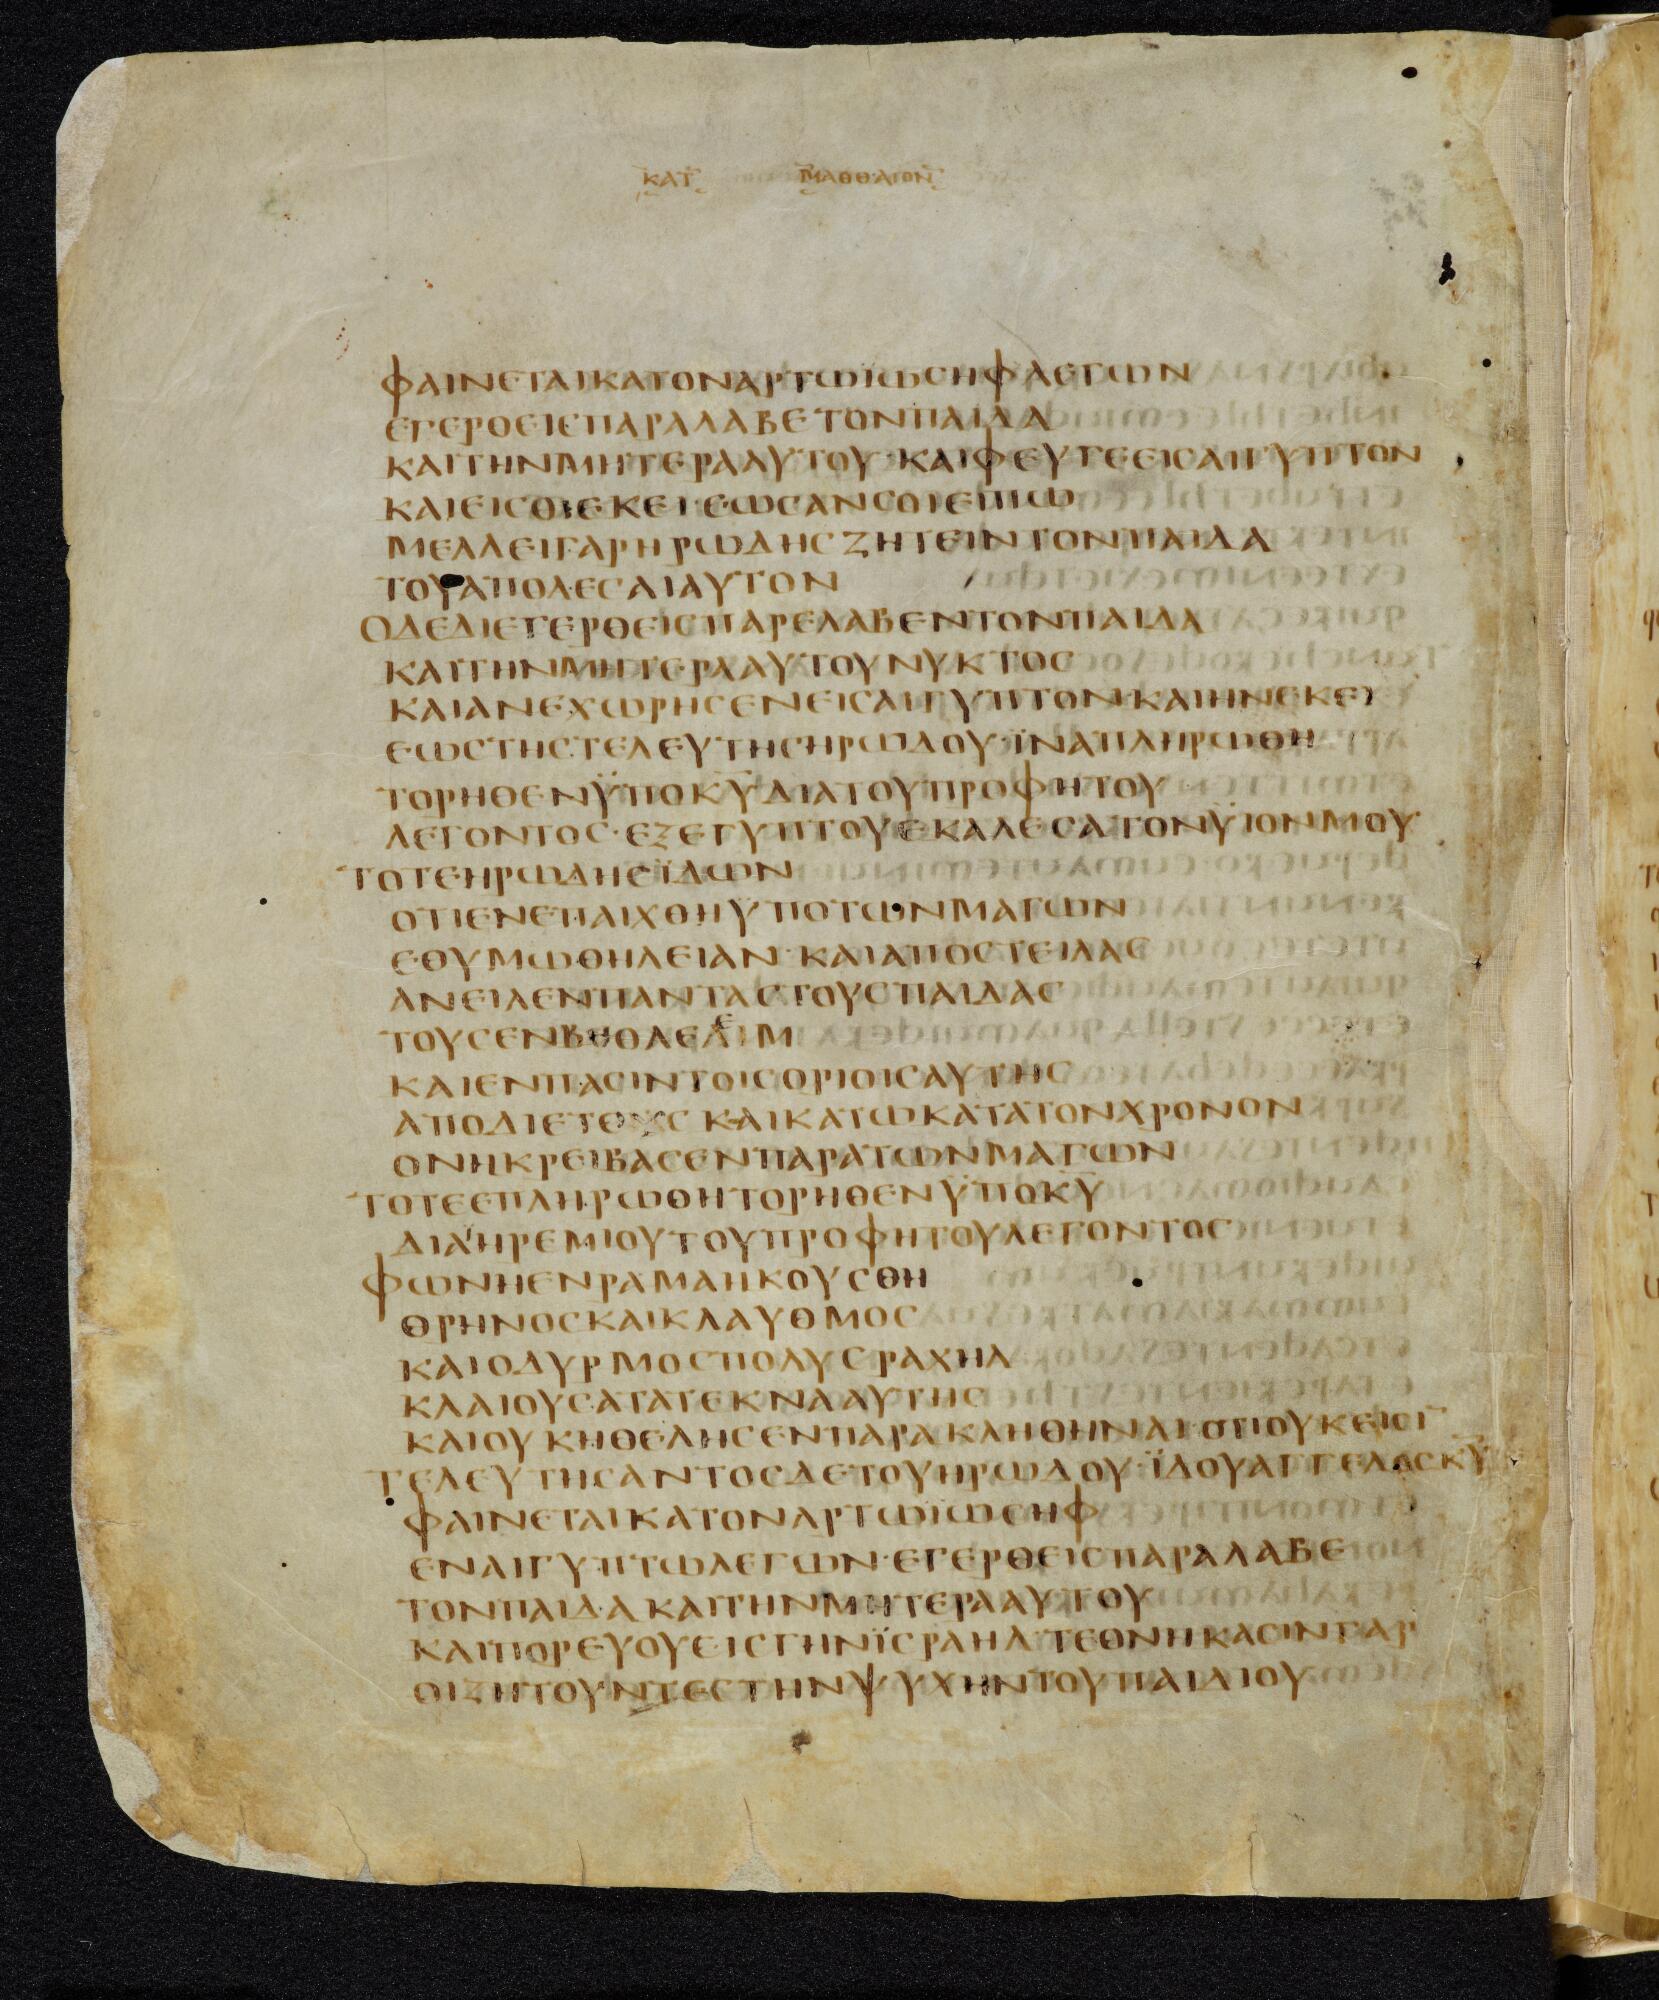 ΚΑΤ ΜΑΘΘΑΙΟΝ
ΦΑΙΝΕΤΑΙΚΑΤΟΝΑΡΤΩΙΩΣΗΦΛΕΓΩΝ
ΕΓΕΡΘΕΙϹΠΑΡΑΛΑΒΕΤΟΝΠΑΙΔΑ
ΚΑΙΤΗΝΜΗΤΕΡΑΑΥΤΟΥ·ΚΑΙΦΕΥΓΕΕΙϹΑΙΓΥΠΤΟΝ
ΚΑΙΕΙϹΘΙΕΚΕΙ·ΕΩϹΑΝϹΟΙΕΙΠΩ
ΜΕΛΛΕΙΓΑΡΗΡΩΔΗϹΖΗΤΕΙΝΤΟΝΠΑΙΔΑ
ΤΟΥΑΠΟΛΕϹΑΙΑΥΤΟΝ
ΟΔΕΔΙΕΓΕΡΘΕΙϹΠΑΡΕΛΑΒΕΝΤΟΝΠΑΙΔΑ
ΚΑΙΤΗΝΜΗΤΕΡΑΑΥΤΟΥΝΥΚΤΟϹ
ΚΑΙΑΝΕΧΩΡΗϹΕΝΕΙϹΑΙΓΥΠΤΟΝ·ΚΑΙΗΝΕΚΕΙ
ΕΩϹΤΗϹΤΕΛΕΥΤΗϹΗΡΩΔΟΥ·ΪΝΑΠΛΗΡΩΘΗ
ΤΟΡΗΘΕΝΫΠΟΚ̅Υ̅ΔΙΑΤΟΥΠΡΟΦΗΤΟΥ
ΛΕΓΟΝΤΟϹ·ΕΞΕΓΥΠΤΟΥΕΚΑΛΕϹΑΤΟΝΫΙΟΝΜΟΥ
ΤΟΤΕΗΡΩΔΗϹΪΔΩΝ
ΟΤΙΕΝΕΠΑΙΧΘΗΥΠΟΤΩΝΜΑΓΩΝ
ΕΘΥΜΩΘΗΛΕΙΑΝ·ΚΑΙΑΠΟϹΤΕΙΛΑϹ
ΑΝΕΙΛΕΝΠΑΝΤΑϹΤΟΥϹΠΑΙΔΑϹ
ΤΟΥϹΕΝΒΗΘΛΕΕΙΜ
ΚΑΙΕΝΠΑϹΙΝΤΟΙϹΟΡΙΟΙϹΑΥΤΗϹ
ΑΠΟΔΙΕΤΟΥϹΚΑΙΚΑΤΩΚΑΤΑΤΟΝΧΡΟΝΟΝ
ΟΝΗΚΡΕΙΒΑϹΕΝΠΑΡΑΤΩΝΜΑΓΩΝ
ΤΟΤΕΕΠΛΗΡΩΘΗΤΟΡΗΘΕΝΫΠΟΚ̅Υ̅
ΔΙΑΗΡΕΜΙΟΥΤΟΥΠΡΟΦΗΤΟΥΛΕΓΟΝΤΟϹ
ΦΩΝΗΕΝΡΑΜΑΗΚΟΥϹΘΗ
ΘΡΗΝΟϹΚΑΙΚΛΑΥΘΜΟϹ
ΚΑΙΟΔΥΡΜΟϹΠΟΛΥϹΡΑΧΗΛ
ΚΛΑΙΟΥϹΑΤΑΤΕΚΝΑΑΥΤΗϹ
ΚΑΙΟΥΚΗΘΕΛΗϹΕΝΠΑΡΑΚΛΗΘΗΝΑΙΟΤΙΟΥΚΕΙϹΙ̅
ΤΕΛΕΥΤΗϹΑΝΤΟϹΔΕΤΟΥΗΡΩΔΟΥ·ΪΔΟΥΑΓΓΕΛΟϹΚ̅Υ̅
ΦΑΙΝΕΤΑΙΚΑΤΟΝΑΡΤΩΙΩϹΗΦ
ΕΝΑΙΓΥΠΤΩΛΕΓΩΝ·ΕΓΕΡΘΕΙϹΠΑΡΑΛΑΒΕ
ΤΟΝΠΑΙΔΑΚΑΙΤΗΝΜΗΤΕΡΑΑΥΤΟΥ
ΚΑΙΠΟΡΕΥΟΥΕΙϹΓΗΝΪϹΡΑΗΛ·ΤΕΘΝΗΚΑϹΙΝΓΑΡ
ΟΙΖΗΤΟΥΝΤΕϹΤΗΝΨΥΧΗΝΤΟΥΠΑΙΔΙΟΥ